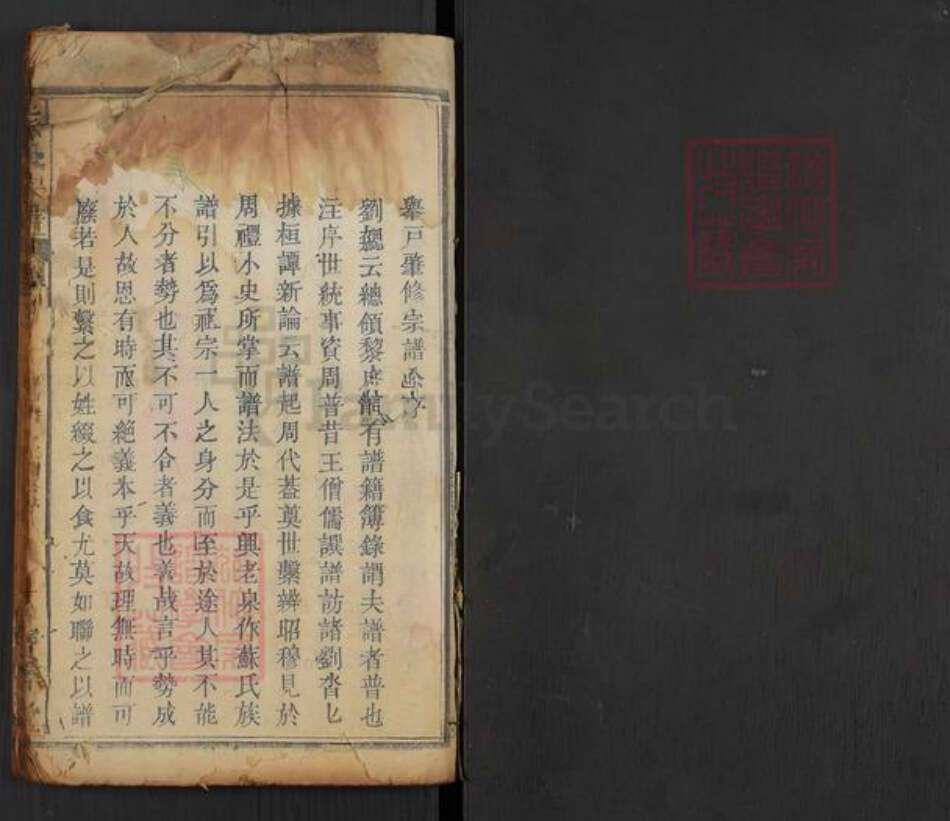 舉戶肇修宗譜序
劉勰云總領黎庶則有譜籍簿錄謂夫譜者普也
注序世統事資周普昔王僧儒譔譜訪諸劉沓匕
據桓譚新論云譜起周代葢奠世繫辨昭穆見於
周禮小史所掌而譜法於是乎興老泉作蘇氏族
譜引以爲祖宗一人之身分而至於途人其不能
不分者勢也其不可不合者義也善哉言乎勢成
於人故恩有時而可絕義本乎天故理無時而可
廢若是則繫之以姓綴之以食尤莫如聯之以譜
FamilySearch